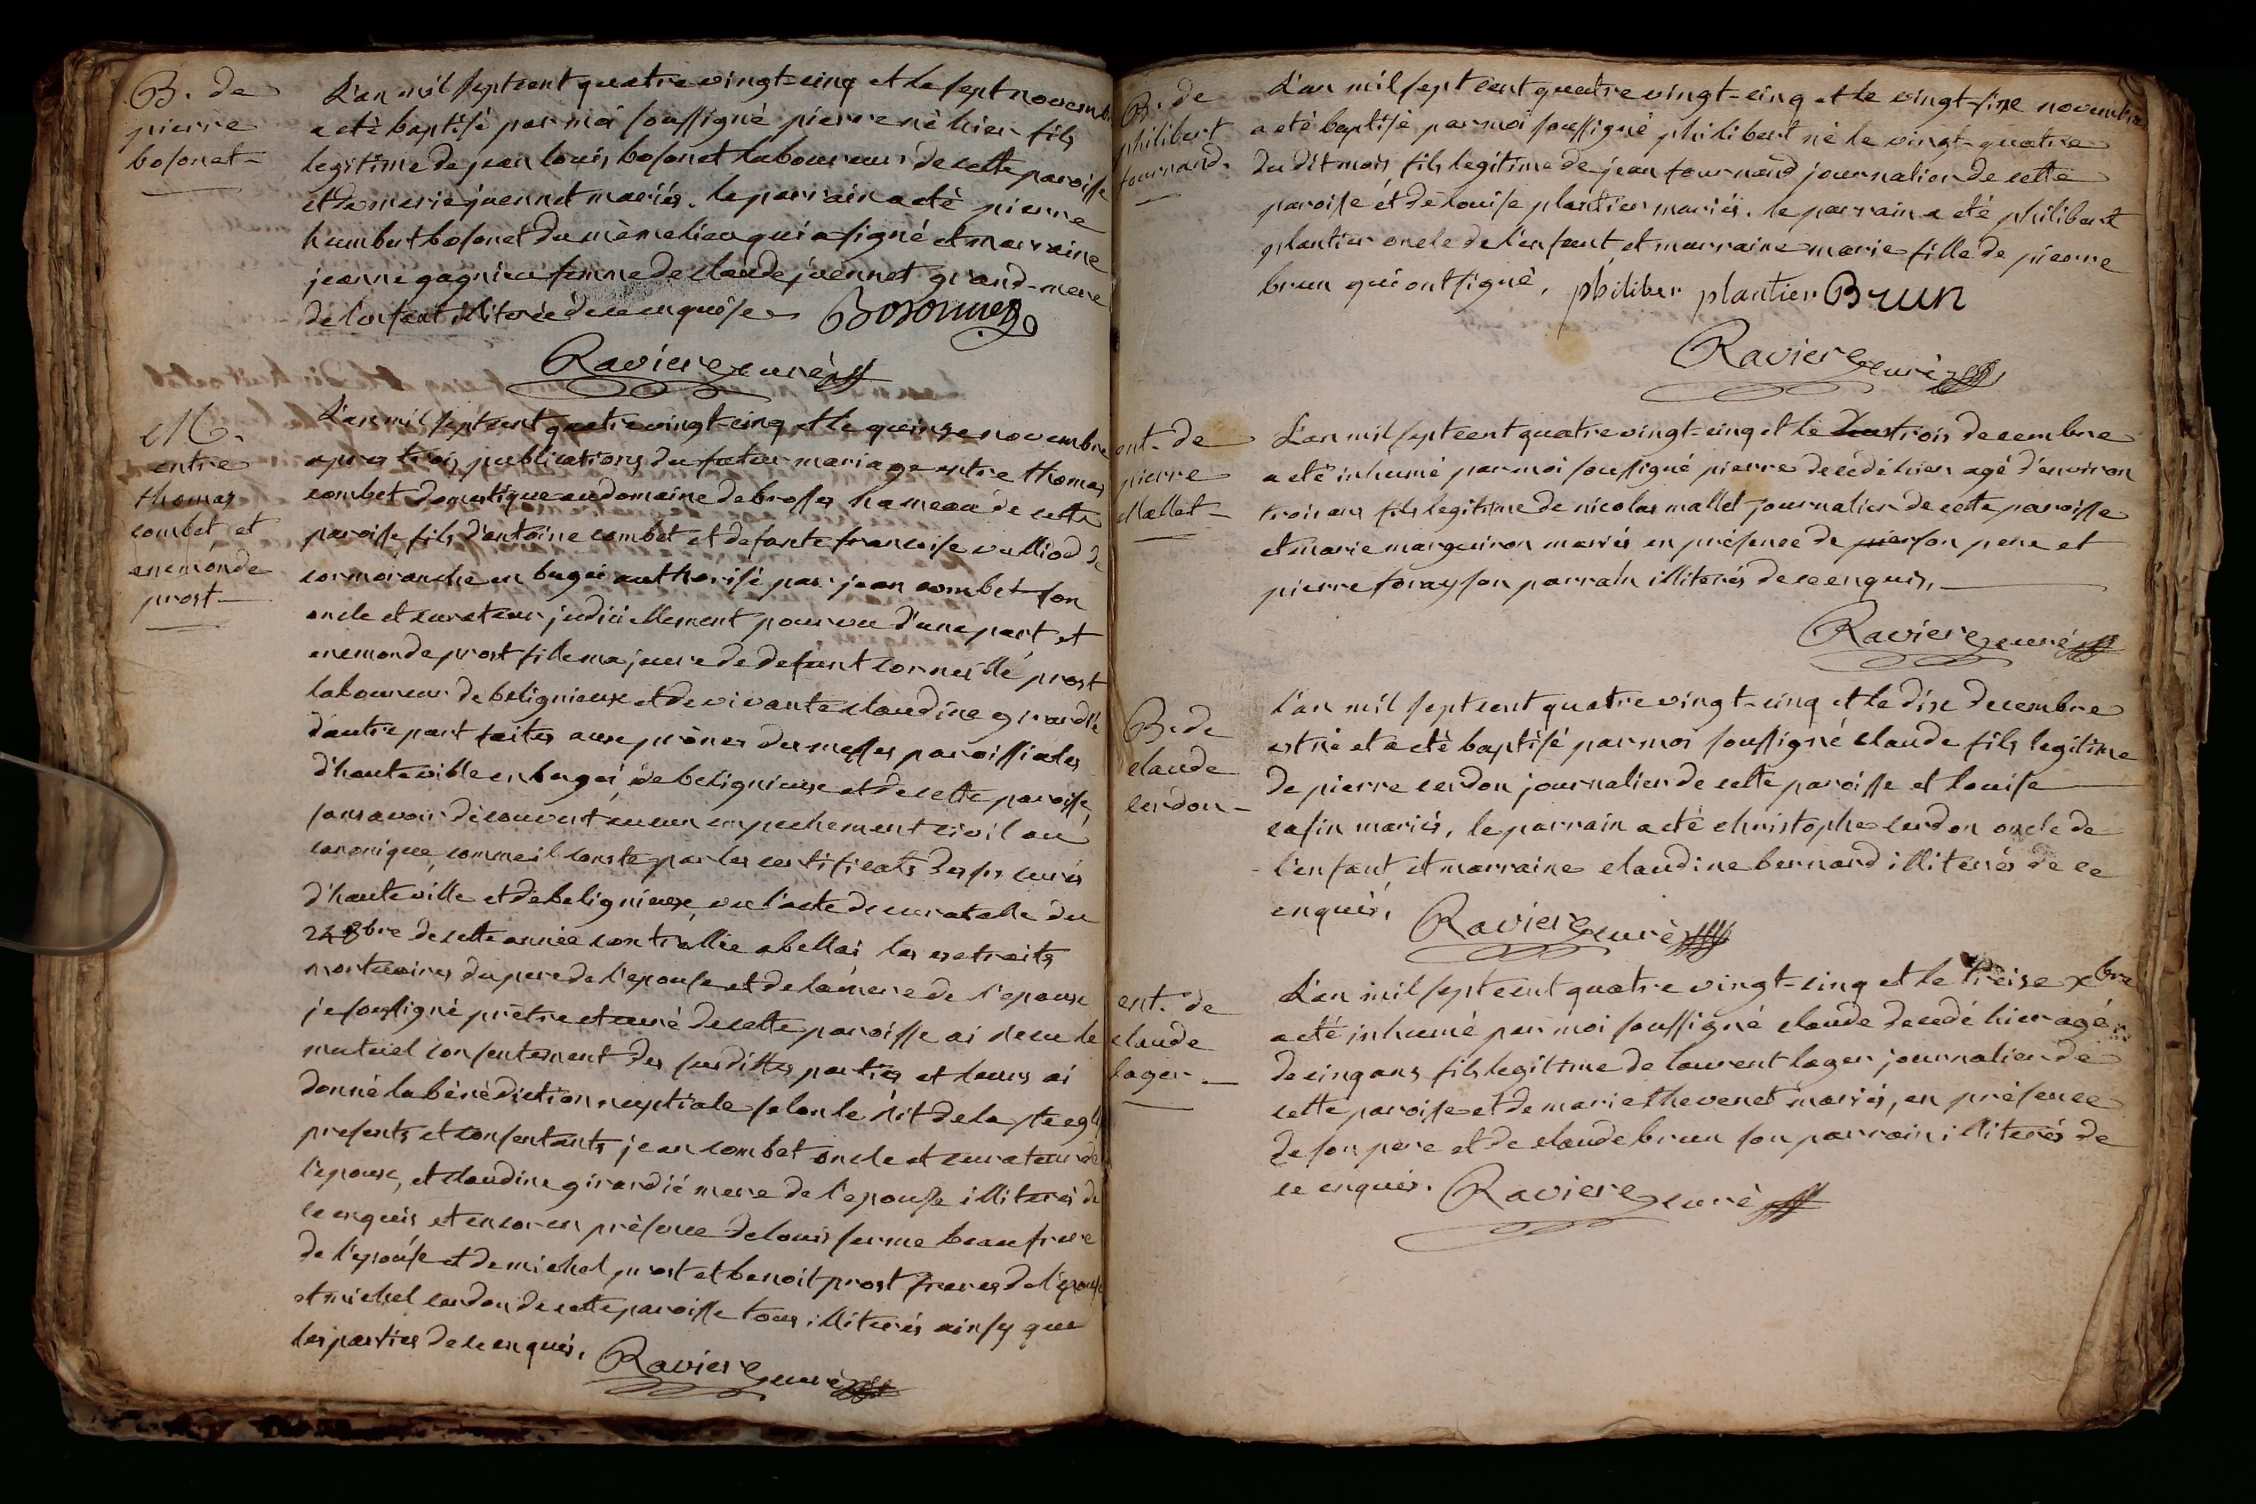 B. de
pierre
bosonet
L'an mil sept cent quatre vingt-cinq et le sept novemb
a eté baptisé par moi soussigné pierre né hier fils
legitime de jean louis bosonet laboureur de cette paroisse
et de marie juennet mariés. le parrain a eté pierre
humbert bosonet du même lieu qui a signé et marraine
jeanne gagnieu femme de claude juennet grand-mere
de l'enfant illiterée de ce enquise Bosonnet
Raviere curé
M.
entre
thomas
combet et
enemonde
prost
L'an mil sept cent quatre vingt-cinq et le quinze novembre
apres trois publications du futur mariage entre thomas
combet domestique au domaine de brosses hameau de cette
paroisse fils d'antoine combet et defunte francoise vulliod de
cormoranche en bugei authorisé par jean combet son
oncle et curateur judiciellement pourvu d'une part, et
enemonde prost fille majeure de defunt corneille prost
laboureur de belignieux et de vivante claudine girardié
d'autre part faites aux prônes des messes paroissiales
d'hauteville en bugei, de belignieux et de cette paroisse
sans avoir découvert aucun empechement civil ou
canonique, comme il conste par les certificats des srs curés
d'hauteville et de belignieux, vu l'acte de curatelle du
24 8bre de cette année controllée a bellai les extraits
mortuaires du pere de l'epouse et de la mere de l'epoux
je soussigné prêtre et curé de cette paroisse ai recu le
mutuel consentement des susdittes parties et leurs ai
donné la bénédiction nuptiale selon le rit de la ste egl
presents et consentants jean combet oncle et curateur de
l'epoux, et claudine girardié mere de l'epouse illiterés de
ce enquis et encor en présence de louis ferme beaufrere
de l'epouse et de michel prost et benoit prost freres de l'epouse
et michel cerdon de cette paroisse tous illiterés ainsy que
les parties de ce enquis. Raviere curé
B. de
philibert
tournand.
L'an mil sept cent quatre vingt-cinq et le vingt-sixe novembre
a eté baptisé par moi soussigné philibert né le vingt-quatre
du dit mois, fils legitime de jean tournand journalier de cette
paroisse et de louise plantier mariés. le parrain a eté philibert
plantier oncle de l'enfant, et marraine marie fille de pierre
brun qui ont signé, philiber plantier Brun
Raviere curé
ent. de
pierre
Mallet
L'an mil sept cent quatre vingt-cinq et le trois decembre
a eté inhumé par moi soussigné pierre decédé hier agé d'environ
trois ans fils legitime de nicolas mallet journalier de cette paroisse
et marie margueiron mariés en présence de son pere et
pierre foray son parrain illiterés de ce enquis,
Raviere curé
B. de
claude
cerdon
L'an mil sept cent quatre vingt-cinq et le dix decembre
est né et a eté baptisé par moi soussigné claude fils legitime
de pierre cerdon journalier de cette paroisse et louise
cafin mariés, le parrain a eté christophe cerdon oncle de
l'enfant, et marraine claudine bernard illiterés de ce
enquis, Raviere curé
ent. de
claude
lager
L'an mil sept cent quatre vingt-cinq et le treize xbre
a eté inhumé par moi soussigné claude decedé hier agé
de cinq ans fils legitime de laurent lager journalier de
cette paroisse et de marie thevenet mariés, en présence
de son pere et de claude brun son parrain illiterés de
ce enquis. Raviere curé